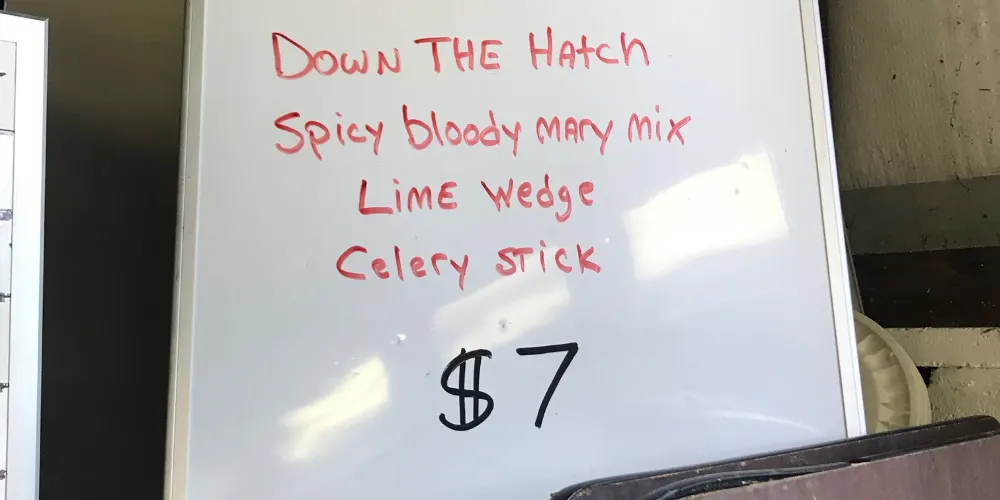 Down THE Hatch
Spicy bloody MARY Mix
LiME Wedge
Celery STick
$7